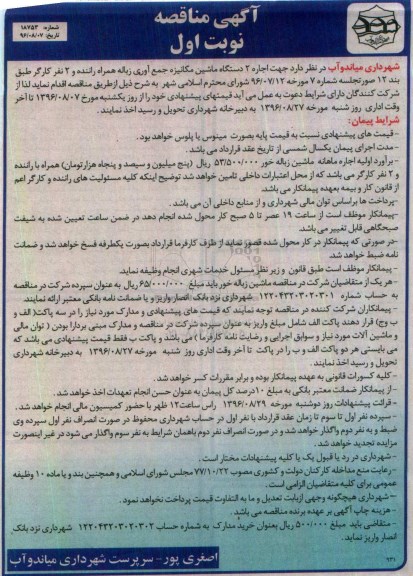 آگهی مناقصه
نوبت اول
شماره: ۱۸۷۵۳
تاریخ: ۹۶/۰۸/۰۷
شهرداری میاندوآب در نظر دارد جهت اجاره ۲ دستگاه ماشین مکانیزه جمع آوری زباله همراه راننده و ۲ نفر کارگر طبق
بند ۱۲ صورتجلسه شماره ۷ مورخه ۹۶/۰۷/۱۲ شورای محترم اسلامی شهر به شرح ذیل ازطریق مناقصه اقدام نماید لذا از
شرکت کنندگان دارای شرایط دعوت به عمل می آید قیمتهای پیشنهادی خود را از روز یکشنبه مورخ ۱۳۹۶/۰۸/۰۷ تا آخر
وقت اداری روز شنبه مورخه ۱۳۹۶/۰۸/۲۷ به دبیرخانه شهرداری تحویل و رسید اخذ نمایند.
شرایط پیمان:
- قیمت های پیشنهادی نسبت به قیمت پایه بصورت مینوس یا پلوس خواهد بود.
- مدت اجرای پیمان یکسال شمسی از تاریخ عقد قرارداد می باشد.
- برآورد اولیه اجاره ماهانه ماشین زباله خور ۵۳/۵۰۰/۰۰۰ ریال (پنج میلیون و سیصد و پنجاه هزارتومان) همراه با راننده
و ۲ نفر کارگر می باشد که از محل اعتبارات داخلی تامین خواهد شد توضیح اینکه کلیه مسئولیت های راننده و کارگر اعم
از قانون کار و بیمه بعهده پیمانکار می باشد.
-پرداخت ها براساس توان مالی شهرداری و از منابع داخلی آن می باشد.
-پیمانکار موظف است از ساعت ۱۹ عصر تا ۵ صبح کار محول شده انجام دهد در ضمن ساعت تعیین شده به شیفت
صبحگاهی قابل تغییر می باشد.
-در صورتی که پیمانکار در کار محول شده قصور نماید از طرف کارفرما قرارداد بصورت یکطرفه فسخ خواهد شد و ضمانت
نامه ضبط خواهد شد.
- پیمانکار موظف است طبق قانون و زیر نظر مسئول خدمات شهری انجام وظیفه نماید.
- هر یک از متقاضیان شرکت در مناقصه ماشین زباله خور باید مبلغ ۶۵/۰۰۰/۰۰۰ ریال به عنوان سپرده شرکت در مناقصه
به حساب شماره ۱۲۲۰۴۳۲۰۳۰۲۰۳۰۱ شهرداری نزد بانک انصار واریز و یا ضمانت نامه بانکی معتبر ارائه نمایند.
- پیمانکاران شرکت کننده در مناقصه توجه نمایند که قیمت های پیشنهادی و مدارک مورد نیاز را در سه پاکت( الف و
ب وج) قرار دهند پاکت الف شامل مبلغ واریز به عنوان سپرده شرکت در مناقصه و مدارک مبنی بردارا بودن ( توان مالی
و ماشین آلات مورد نیاز و سوابق اجرایی و رضایت نامه کارفرما ) می باشد و پاکت ب فقط قیمت پیشنهادی می باشد که
می بایستی هر دو پاکت الف و ب را در پاکت تا آخر وقت اداری روز شنبه مورخه ۱۳۹۶/۰۸/۲۷ به دبیرخانه شهرداری
تحویل و رسید اخذ نمایند.
- کلیه کسورات قانونی به عهده پیمانکار بوده و برابر مقررات کسر خواهد شد.
- از پیمانکار ضمانت معتبر بانکی به مبلغ ۱۰درصد کل پیمان به عنوان حسن انجام تعهدات اخذ خواهد شد.
- قرائت پیشنهادات روز دوشنبه مورخه ۱۳۹۶/۰۸/۲۹ راس ساعت۱۲ ظهر با حضور کمیسیون مالی انجام خواهد شد.
- سپرده نفر اول تا سوم تا زمان عقد قرارداد با نفر اول در حساب شهرداری محفوظ در صورت انصراف نفر اول سپرده وی
ضبط و به نفر دوم واگذار خواهد شد و در صورت انصراف نفر دوم باهمان شرایط به نفر سوم واگذار می شود در غیر اینصورت
مزایده تجدید خواهد شد.
- شهرداری در رد یا قبول یک یا کلیه پیشنهادات مختار است.
-رعایت منع مداخله کارکنان دولت و کشوری مصوب ۷۷/۱۰/۲۲ مجلس شورای اسلامی و همچنین بند و یا ماده ۱۰ وظیفه
عمومی برای کلیه متقاضیان الزامی است.
- شهرداری هیچگونه وجهی ازبابت تعدیل و ما به التفاوت قیمت پرداخت نخواهد نمود.
- هزینه چاپ آگهی بر عهده برنده مناقصه می باشد.
- متقاضی باید مبلغ ۵۰۰/۰۰۰ ریال بعنوان خرید مدارک به شماره حساب ۱۲۲۰۴۳۲۰۳۰۲۰۳۰۲ شهرداری نزد بانک
انصار واریز نماید.
اصغری پور - سرپرست شهرداری میاندوآب
۹۳۱